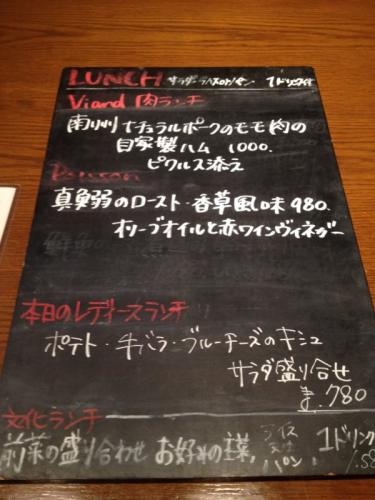 LUNCH サラダ・ラペ 1ドリンク付
Viand 肉ランチ
南州ナチュラルポークのモモ肉の
自家製ハム 1000.
ピクルス添え
Poisson
真鰯のロースト・香草風味 980.
オリーブオイルと赤ワインヴィネガー
本日のレディースランチ
ポテト・牛バラ・ブルーチーズのキッシュ
サラダ盛り合せ
¥.780
文化ランチ
前菜の盛り合わせ お好みの主菜, パン 1ドリンク